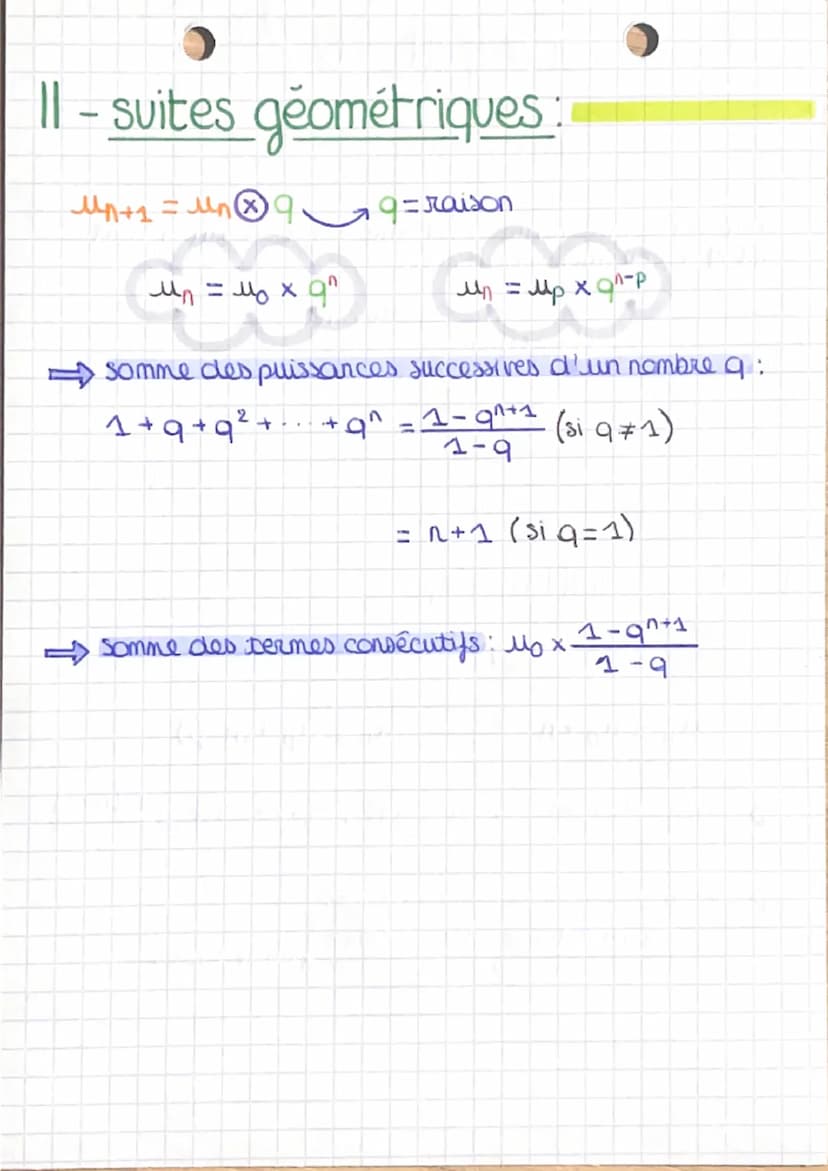 II - suites géométriques :
uₙ₊₁ = uₙ × q → q = raison
uₙ = u₀ × qⁿ
uₙ = uₚ × qⁿ⁻ᵖ
⇒ somme des puissances successives d'un nombre q :
1 + q + q² + ... + qⁿ = (1 - qⁿ⁺¹)/(1 - q) (si q ≠ 1)
= n+1 (si q = 1)
⇒ somme des termes consécutifs : u₀ × (1 - qⁿ⁺¹)/(1 - q)